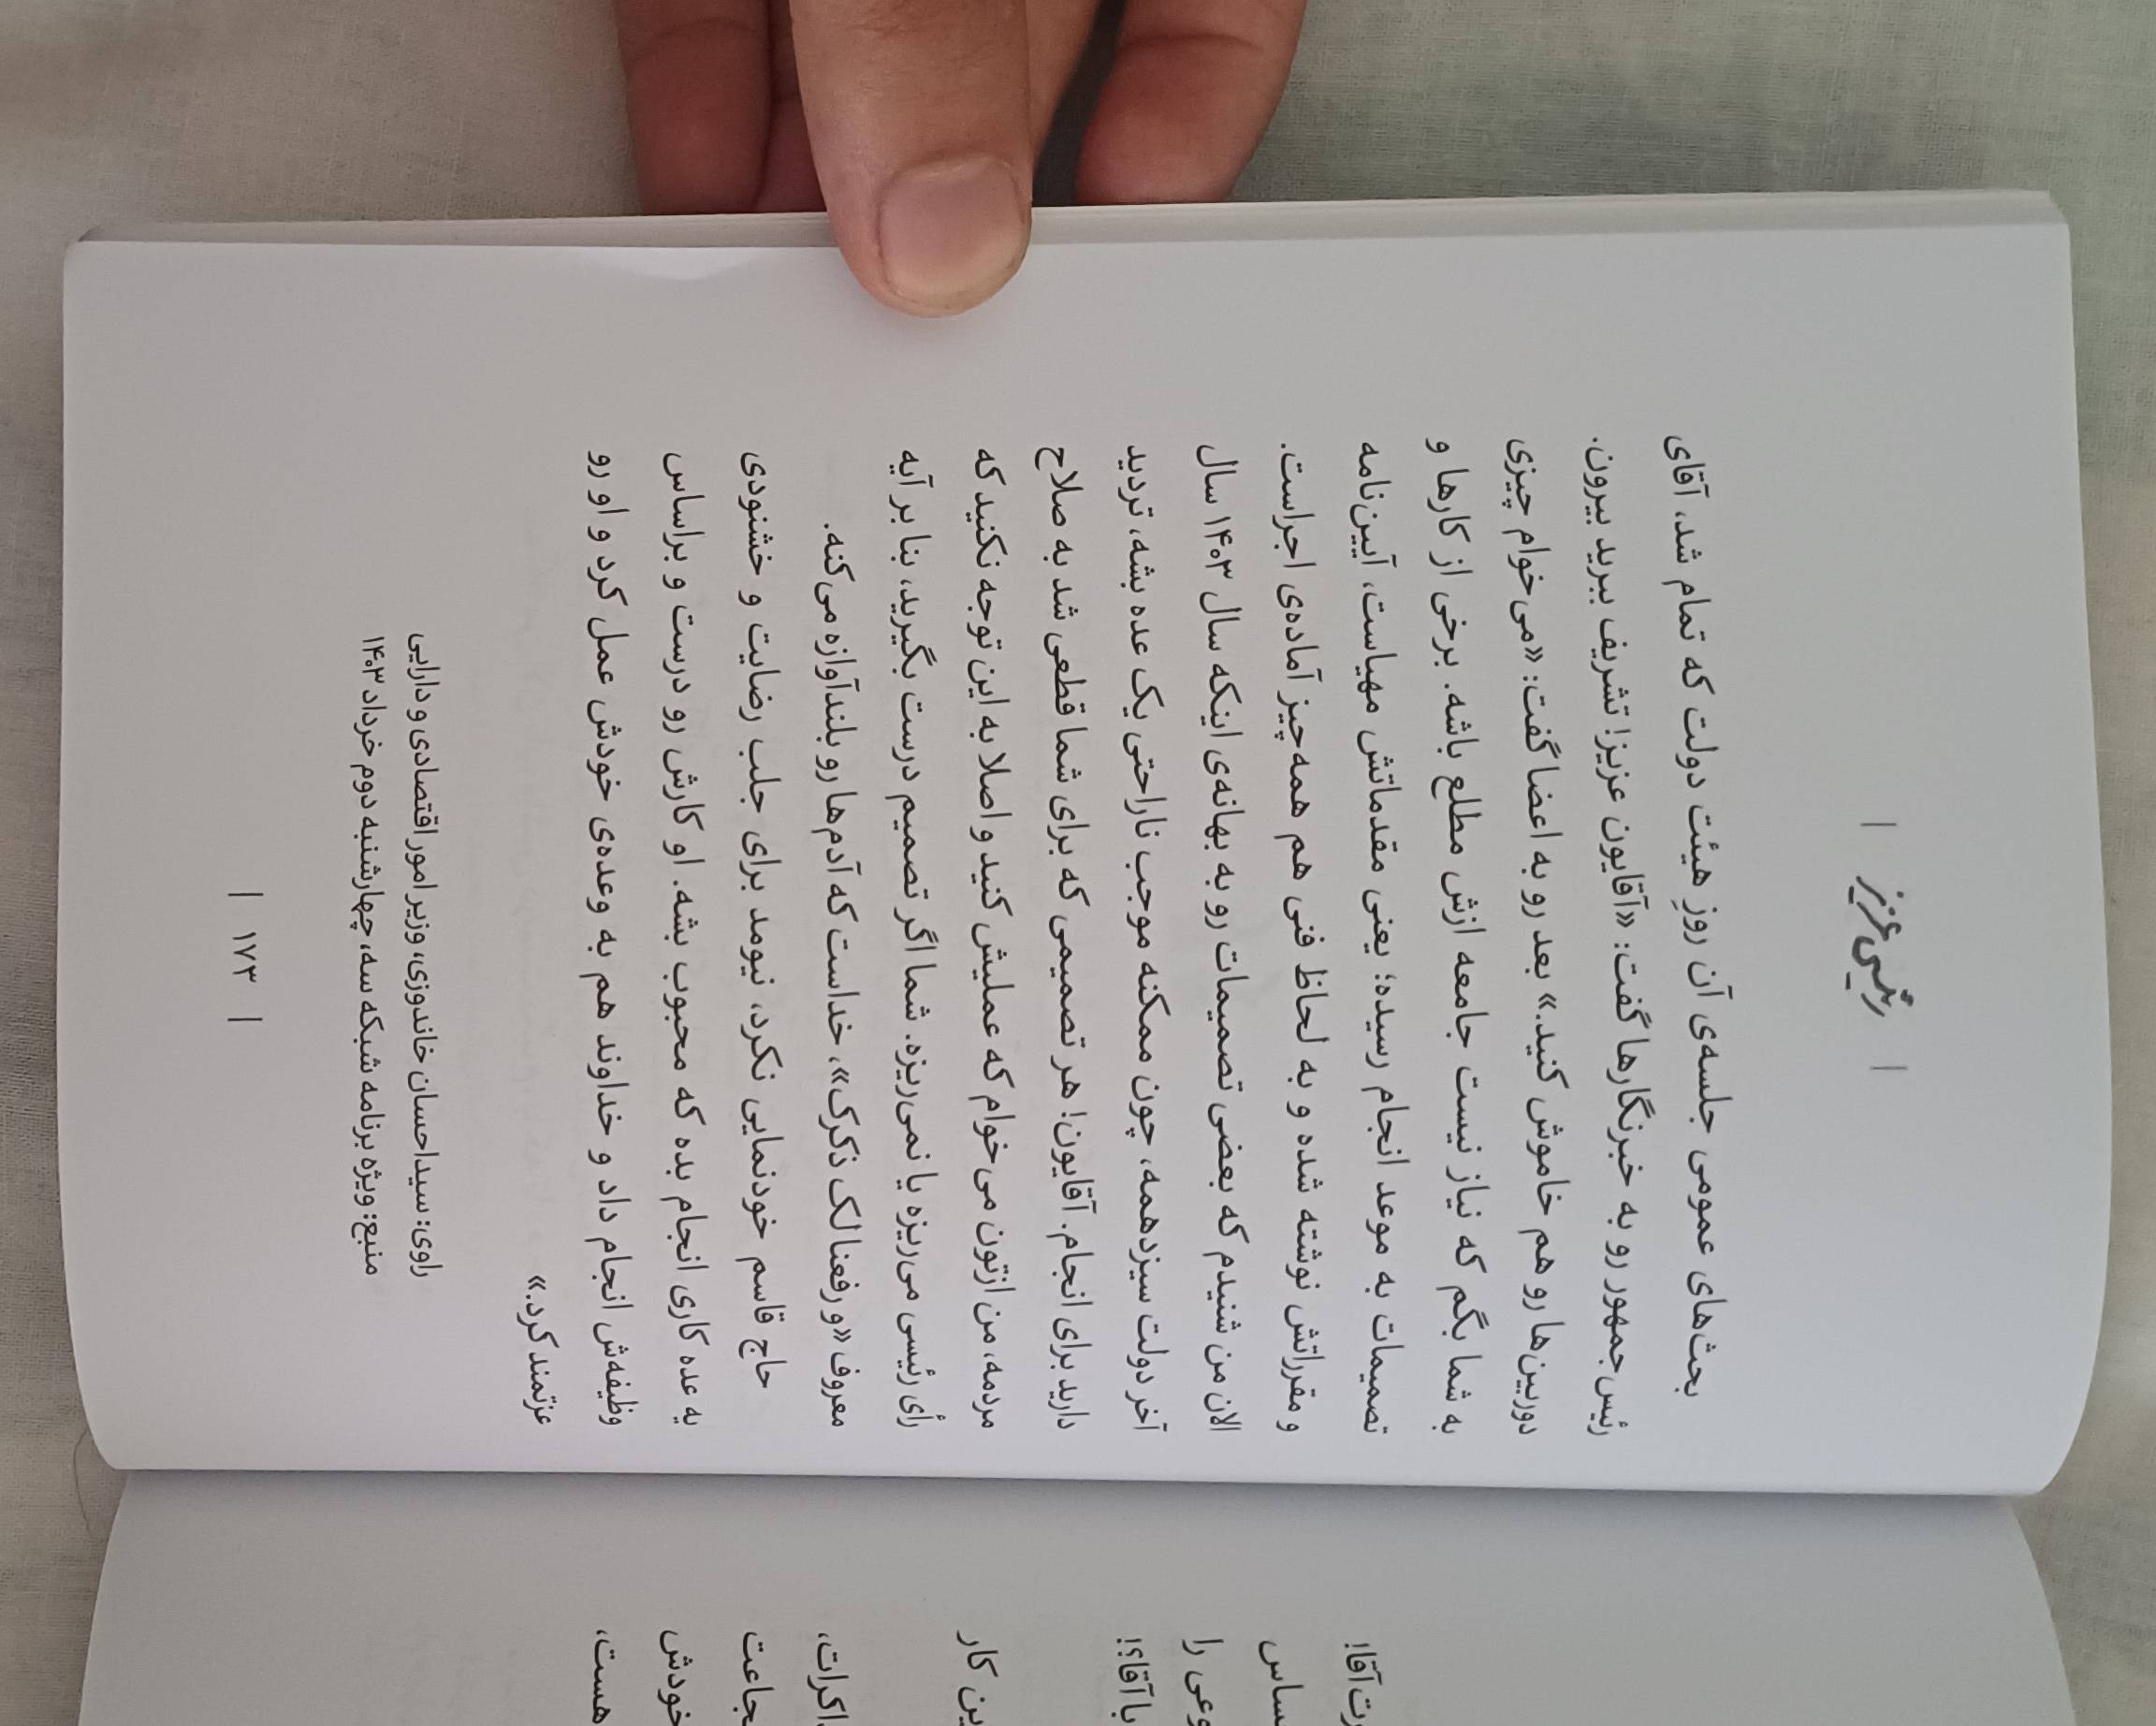 | رئیسی عزیز |
بحث‌های عمومی جلسه‌ی آن روزِ هیئت دولت که تمام شد، آقای
رئیس‌جمهور رو به خبرنگارها گفت: «آقایون عزیز! تشریف ببرید بیرون.
دوربین‌ها رو هم خاموش کنید.» بعد رو به اعضا گفت: «می‌خوام چیزی
به شما بگم که نیاز نیست جامعه ازش مطلع باشه. برخی از کارها و
تصمیمات به موعد انجام رسیده؛ یعنی مقدماتش مهیاست، آیین‌نامه
و مقرراتش نوشته شده و به لحاظ فنی هم همه‌چیز آماده‌ی اجراست.
الان من شنیدم که بعضی تصمیمات رو به بهانه‌ی اینکه سال ۱۴۰۳ سال
آخر دولت سیزدهمه، چون ممکنه موجب ناراحتی یک عده بشه، تردید
دارید برای انجام. آقایون! هر تصمیمی که برای شما قطعی شد به صلاح
مردمه، من ازتون می‌خوام که عملیش کنید و اصلا به این توجه نکنید که
رأی رئیسی می‌ریزه یا نمی‌ریزه. شما اگر تصمیم درست بگیرید، بنا بر آیه
معروف «و رفعنا لک ذکرک»، خداست که آدم‌ها رو بلندآوازه می‌کنه.
حاج قاسم خودنمایی نکرد، نیومد برای جلب رضایت و خشنودی
یه عده کاری انجام بده که محبوب بشه. او کارش رو درست و براساس
وظیفه‌ش انجام داد و خداوند هم به وعده‌ی خودش عمل کرد و او رو
عزتمند کرد.»
راوی: سیداحسان خاندوزی، وزیر امور اقتصادی و دارایی
منبع: ویژه برنامه شبکه سه، چهارشنبه دوم خرداد ۱۴۰۳
| ۱۷۳ |
آقا!
را
با آقای!
ین کار
خودش
هست،